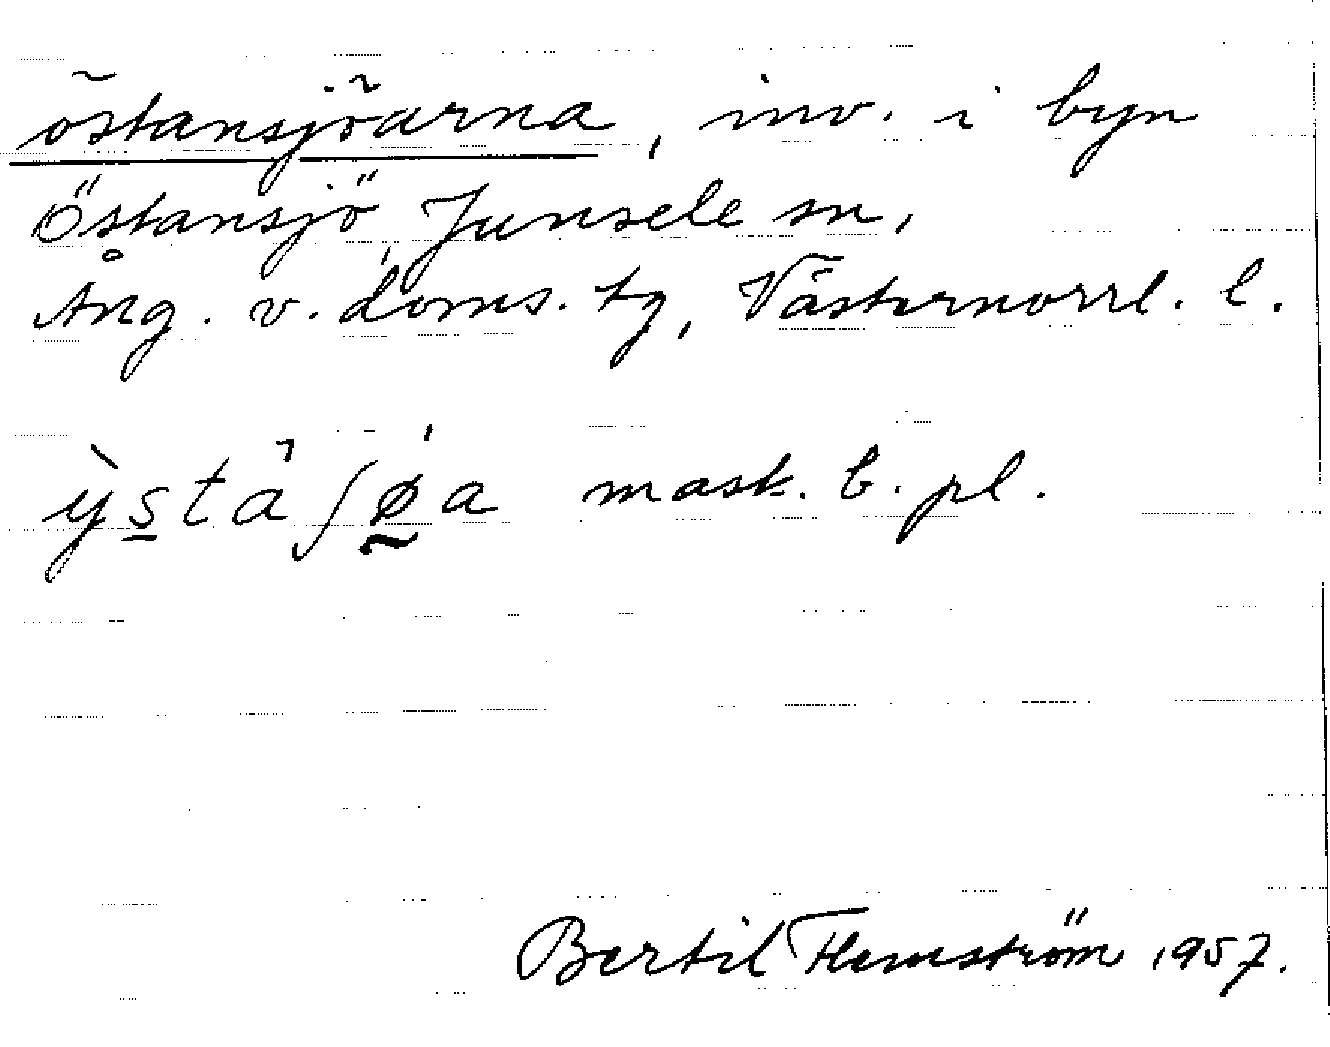 östansjöarna, inv. i byn
Östansjö, Junsele sn,
Ång. v. doms. tg, Västernorrl. l.
ỳstáʃǿ̰a mask. b. pl.
Bertil Flemström 1957.